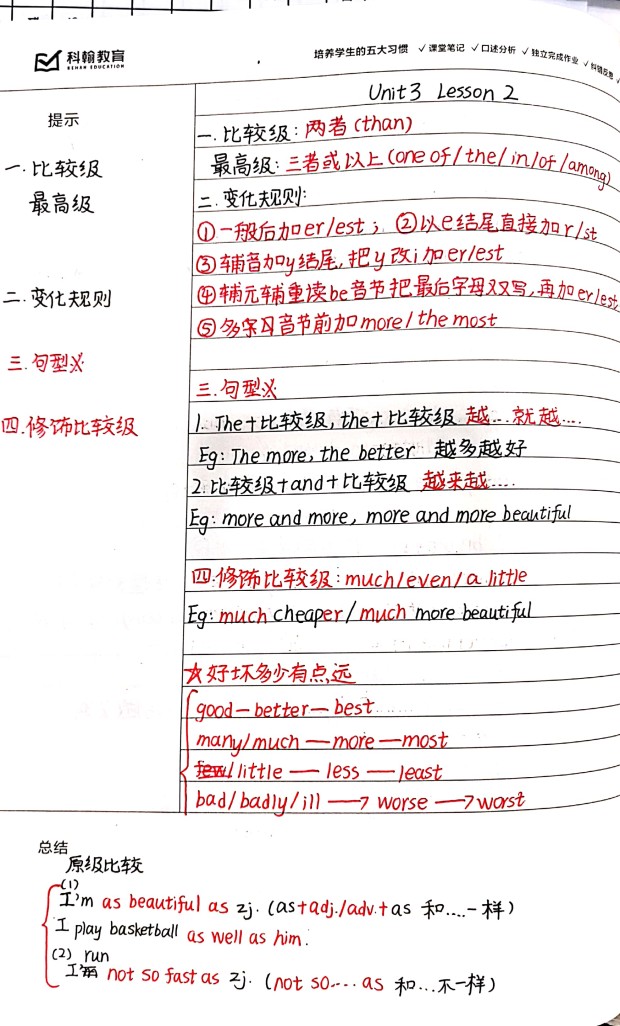 科翰教育
KEHAN EDUCATION
培养学生的五大习惯 √课堂笔记 √口述分析 √独立完成作业 √纠错反思
提示
一.比较级
最高级
二.变化规则
三.句型
四.修饰比较级
Unit3 Lesson 2
一.比较级:两者(than)
最高级:三者或以上(one of/the/in/of/among)
二.变化规则:
①一般后加er/est; ②以e结尾直接加r/st
③辅音加y结尾,把y改i加er/est
④辅元辅重读be音节把最后字母双写,再加er/est
⑤多音节前加more/the most
三.句型
1. The+比较级,the+比较级 越...就越....
Eg: The more, the better 越多越好
2.比较级+and+比较级 越来越....
Eg: more and more, more and more beautiful
四.修饰比较级:much/even/a little
Eg: much cheaper/much more beautiful
☆好坏多少有点远
good—better—best
many/much —more —most
few/little — less —least
bad/badly/ill —→ worse —→worst
总结
原级比较
(1)
I'm as beautiful as zj. (as+adj./adv.+as 和....一样)
I play basketball as well as him.
(2) run
I not so fast as zj. (not so.... as 和...不一样)